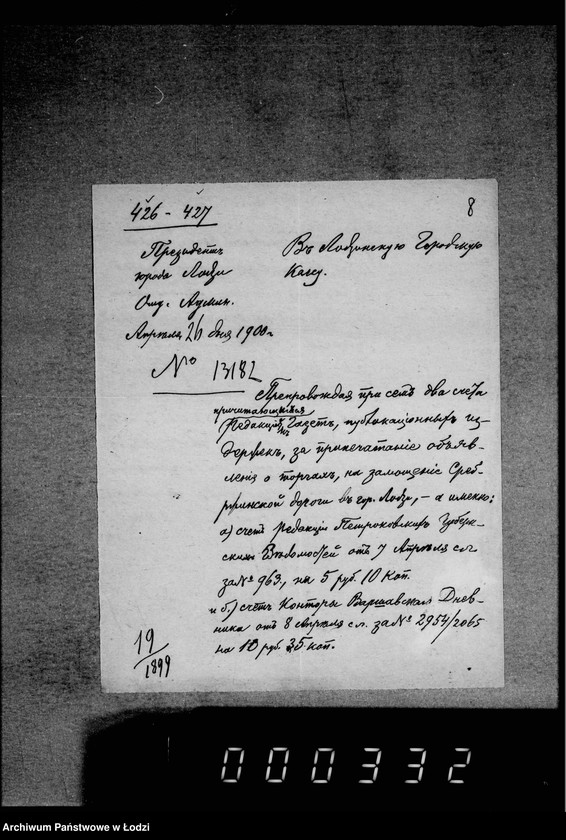 426 - 427
8
Президентъ
города Лодзи
Отд. Админ.
Апрѣля 26 дня 1900 г.
№ 13182
Въ Лодзинскую Городскую
Кассу.
Препровождая при семъ два счета
причитающихся
Редакціямъ Газетъ, публикаціонныхъ из-
держекъ, за припечатаніе объяв-
ленія о торгахъ, на замощеніе Среб-
ржинской дороги въ гор. Лодзи, — а именно:
а) счетъ редакціи Петроковскихъ Губерн-
скихъ Вѣдомостей отъ 7 Апрѣля с.г.
за № 963, на 5 руб. 10 коп.
и б.) счетъ Конторы Варшавскаго Днев-
ника отъ 8 Апрѣля с.г. за № 2954/2065
на 10 руб. 35 коп.
19
1899
000332
Archiwum Państwowe w Łodzi